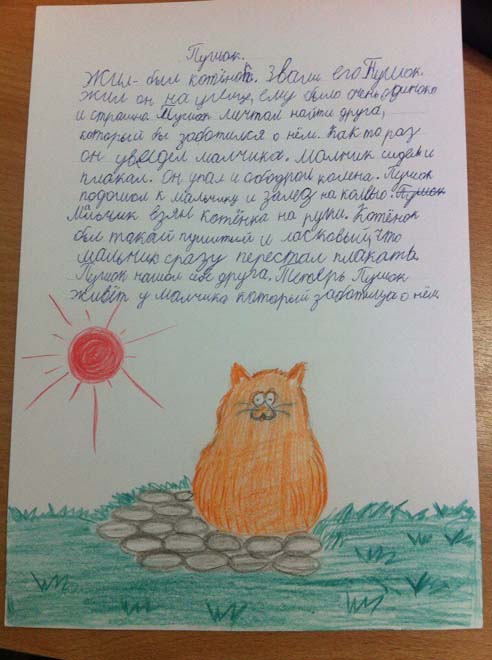 Пушок.
Жил-был котёнок. Звали его Пушок.
Жил он на улице, ему было очень одиноко
и страшна. Пушок мечтал найти друга,
который бы заботился о нём. Как то раз
он увидел мальчика. Мальчик сидел и
плакал. Он упал и ободрал колена. Пушок
подошол к мальчику и залез на кольно. Пушок
Мальчик взял котёнка на руки. Котёнок
был такой пушистый и ласковый, что
мальчик сразу перестал плакать.
Пушок нашол себе друга. Теперь Пушок
живёт у мальчика который заботица о нём.